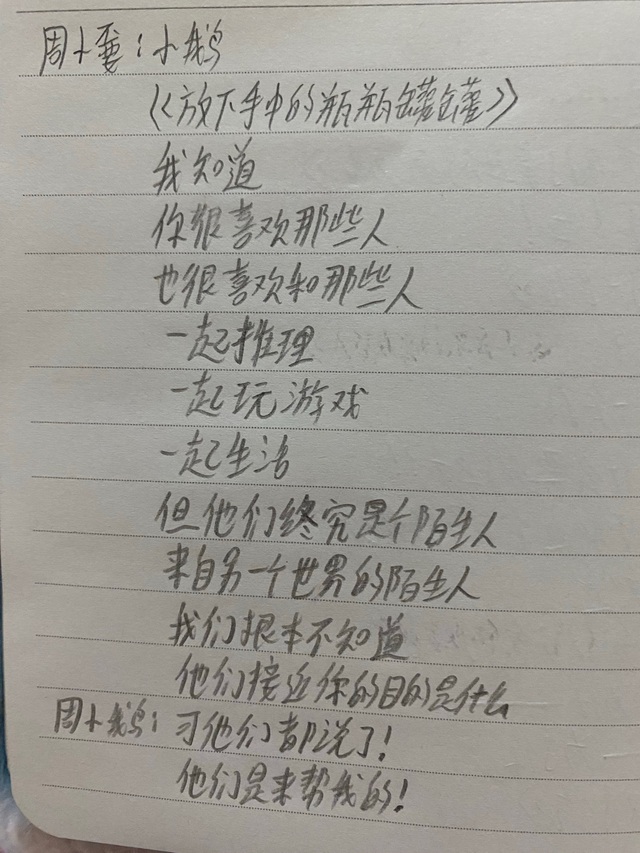 周卜雯：小鹅
《放下手中的瓶瓶罐罐》
我知道
你很喜欢那些人
也很喜欢和那些人
一起推理
一起玩游戏
一起生活
但他们终究是个陌生人
来自另一个世界的陌生人
我们根本不知道
他们接近你的目的是什么
周卜鹅：可他们都说了！
他们是来帮我的！